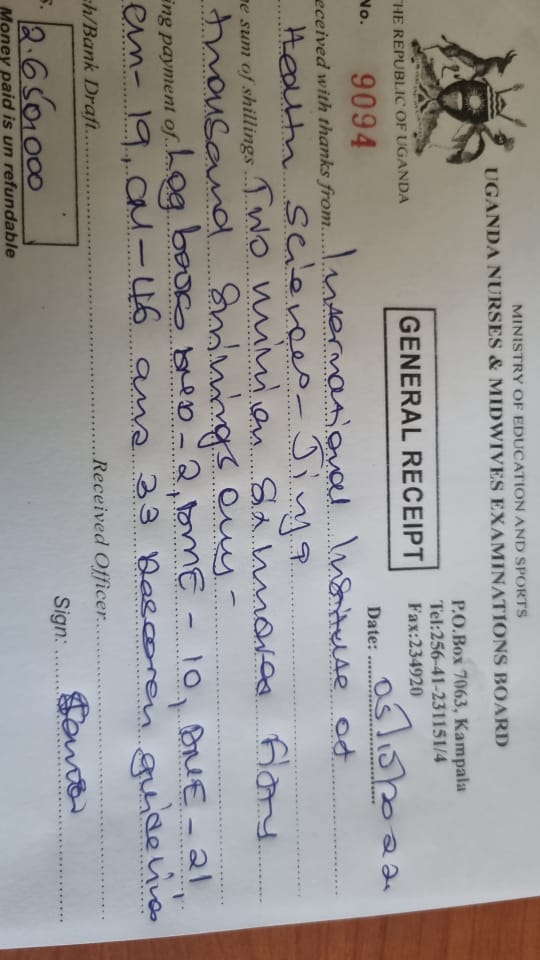 MINISTRY OF EDUCATION AND SPORTS
UGANDA NURSES & MIDWIVES EXAMINATIONS BOARD
P.O.Box 7063, Kampala
Tel:256-41-231151/4
Fax:234920
HE REPUBLIC OF UGANDA
GENERAL RECEIPT
No. 9094
Date: 05/5/2022
eceived with thanks from International Institute of
Health Sciences - Jinja
e sum of shillings Two million Six hundred fifty
thousand Shillings only -
ing payment of Log books - 2, DME - 10, DNE - 21
em - 19, cm - 46 and 33 Research guidelines
h/Bank Draft Received Officer
2.650,000
Sign:
Money paid is un refundable